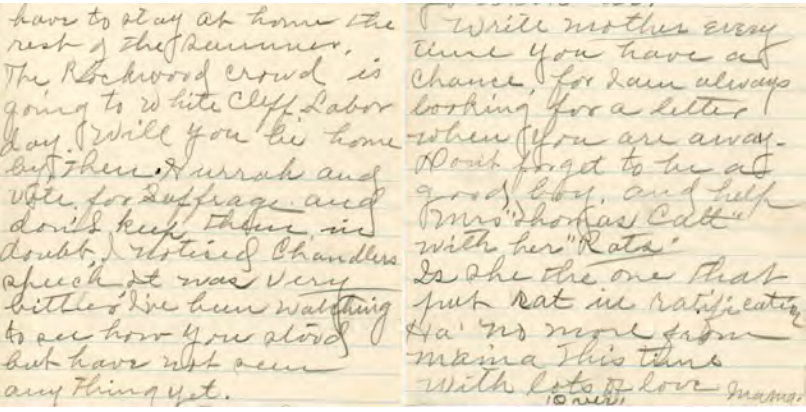 have to stay at home the
rest of the summer.
The Rockwood crowd is
going to White Cliff Labor
day. Will you be home
by then. Hurrah and
vote for Suffrage and
don't keep them in
doubt. I noticed Chandlers
speech it was very
bitter. I've been watching
to see how you stood
but have not seen
any thing yet.
Write mother every
time you have a
chance, for I am always
looking for a letter
when you are away.
Don't forget to be a
good boy, and help
Mrs "Thomas Catt"
with her "Rats".
Is she the one that
put rat in ratification
Ha' no more from
mama this time
with lots of love Mama.
"Over"